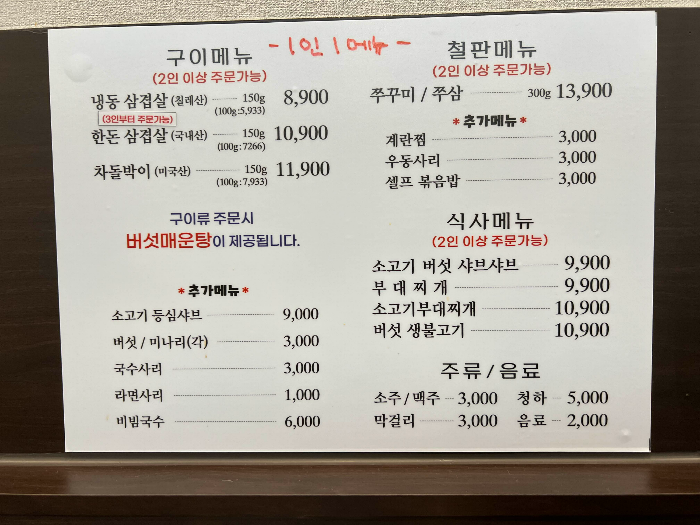 - 1인 1메뉴 -
구이메뉴
(2인 이상 주문가능)
냉동 삼겹살 (칠레산) 150g 8,900
(100g:5,933)
(3인부터 주문가능)
한돈 삼겹살 (국내산) 150g 10,900
(100g:7266)
차돌박이 (미국산) 150g 11,900
(100g:7,933)
구이류 주문시
버섯매운탕이 제공됩니다.
*추가메뉴*
소고기 등심샤브 9,000
버섯 / 미나리(각) 3,000
국수사리 3,000
라면사리 1,000
비빔국수 6,000
철판메뉴
(2인 이상 주문가능)
쭈꾸미 / 쭈삼 300g 13,900
*추가메뉴*
계란찜 3,000
우동사리 3,000
셀프 볶음밥 3,000
식사메뉴
(2인 이상 주문가능)
소고기 버섯 샤브샤브 9,900
부 대 찌 개 9,900
소고기부대찌개 10,900
버섯 생불고기 10,900
주류 / 음료
소주 / 맥주 3,000 청하 5,000
막걸리 3,000 음료 2,000